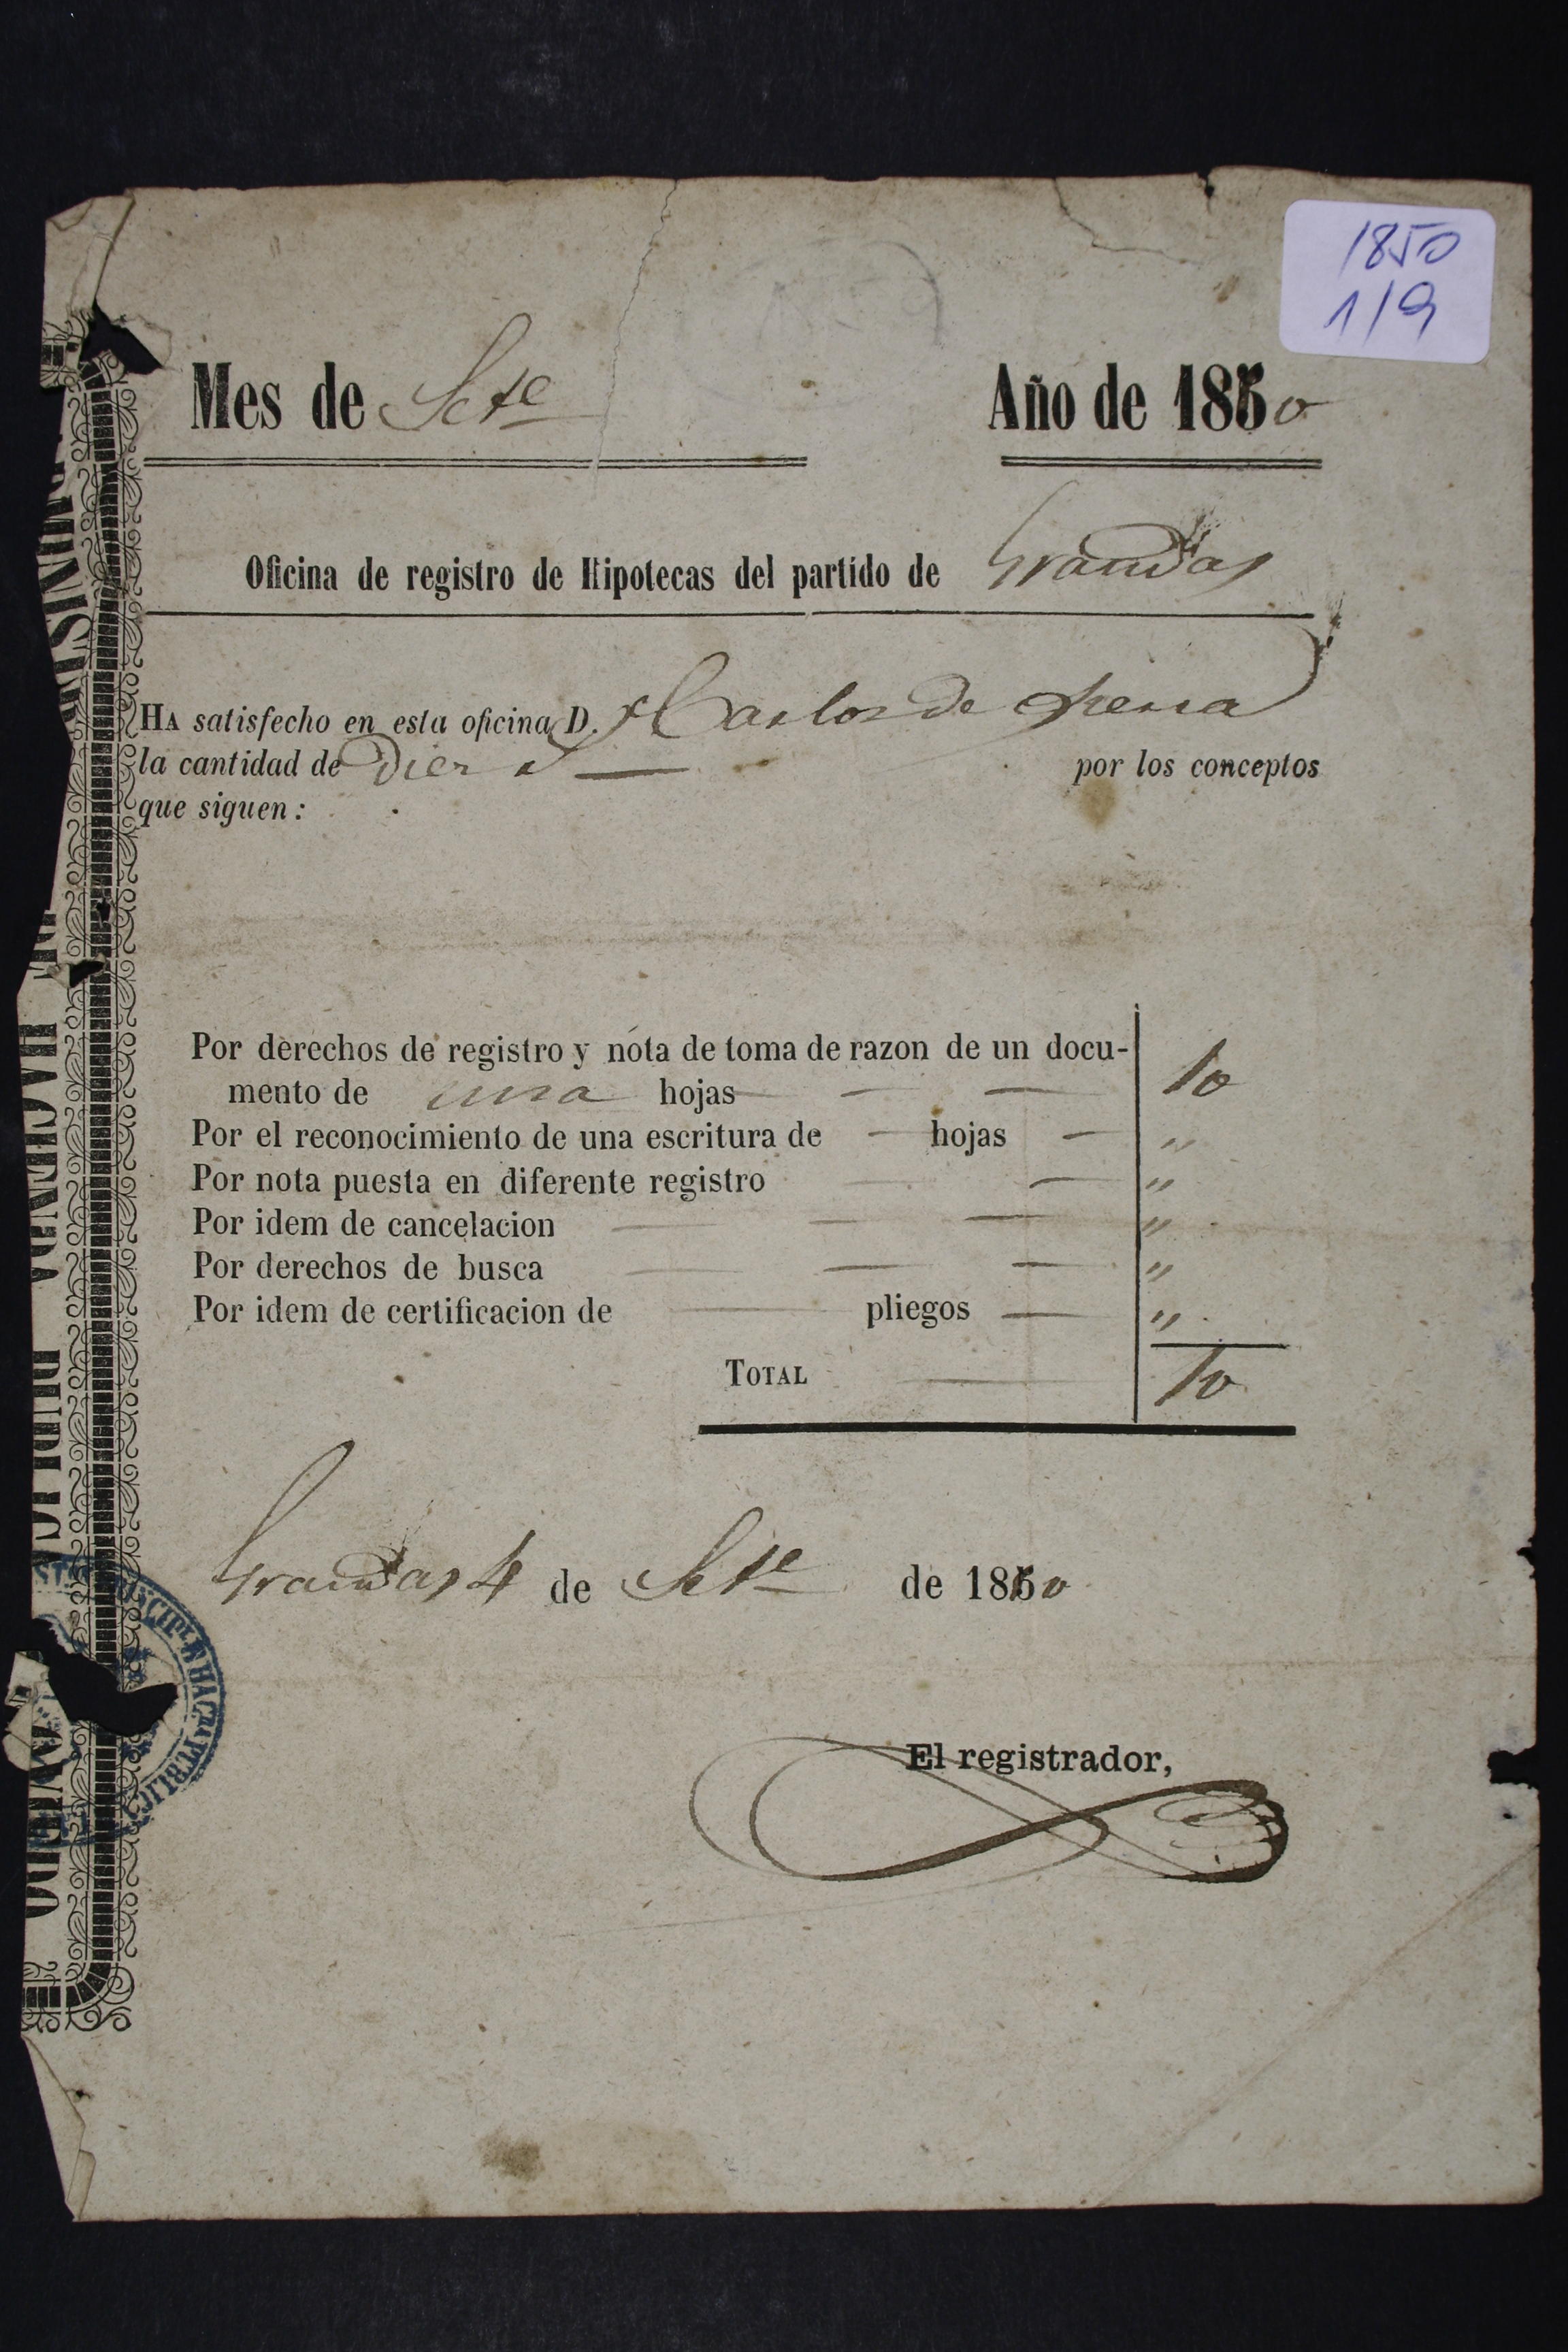 1850
1/9
Mes de Sete Año de 1850
Oficina de registro de Hipotecas del partido de Grandas
HA satisfecho en esta oficina D. Carlos de
la cantidad de Diez por los conceptos
que siguen:
Por derechos de registro y nota de toma de razon de un docu-
mento de una hojas 10
Por el reconocimiento de una escritura de — hojas — "
Por nota puesta en diferente registro — "
Por idem de cancelacion — "
Por derechos de busca — "
Por idem de certificacion de — pliegos — "
TOTAL 10
Grandas 4 de Sete de 1850
El registrador,
HACIENDA PUBLICA
OVIEDO